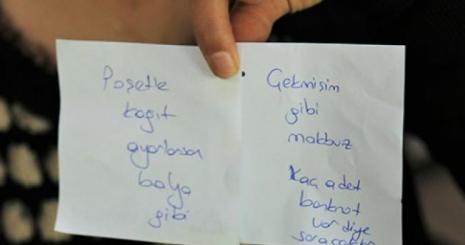 Poşetle
kağıt
ayarlarsan
balya
gibi
Gekmişim
gibi
makbuz
Kaç adet
banknot
var diye
soracaklar